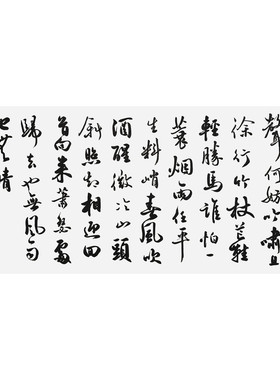 聲何妨吟嘯且
徐行竹杖芒鞋
輕勝馬誰怕一
蓑烟雨任平
生料峭春風吹
酒醒微冷山頭
斜照却相迎回
首向来蕭瑟處
歸去也無風雨
也無晴